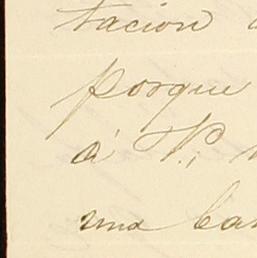 tacion
porque
á V.;
una